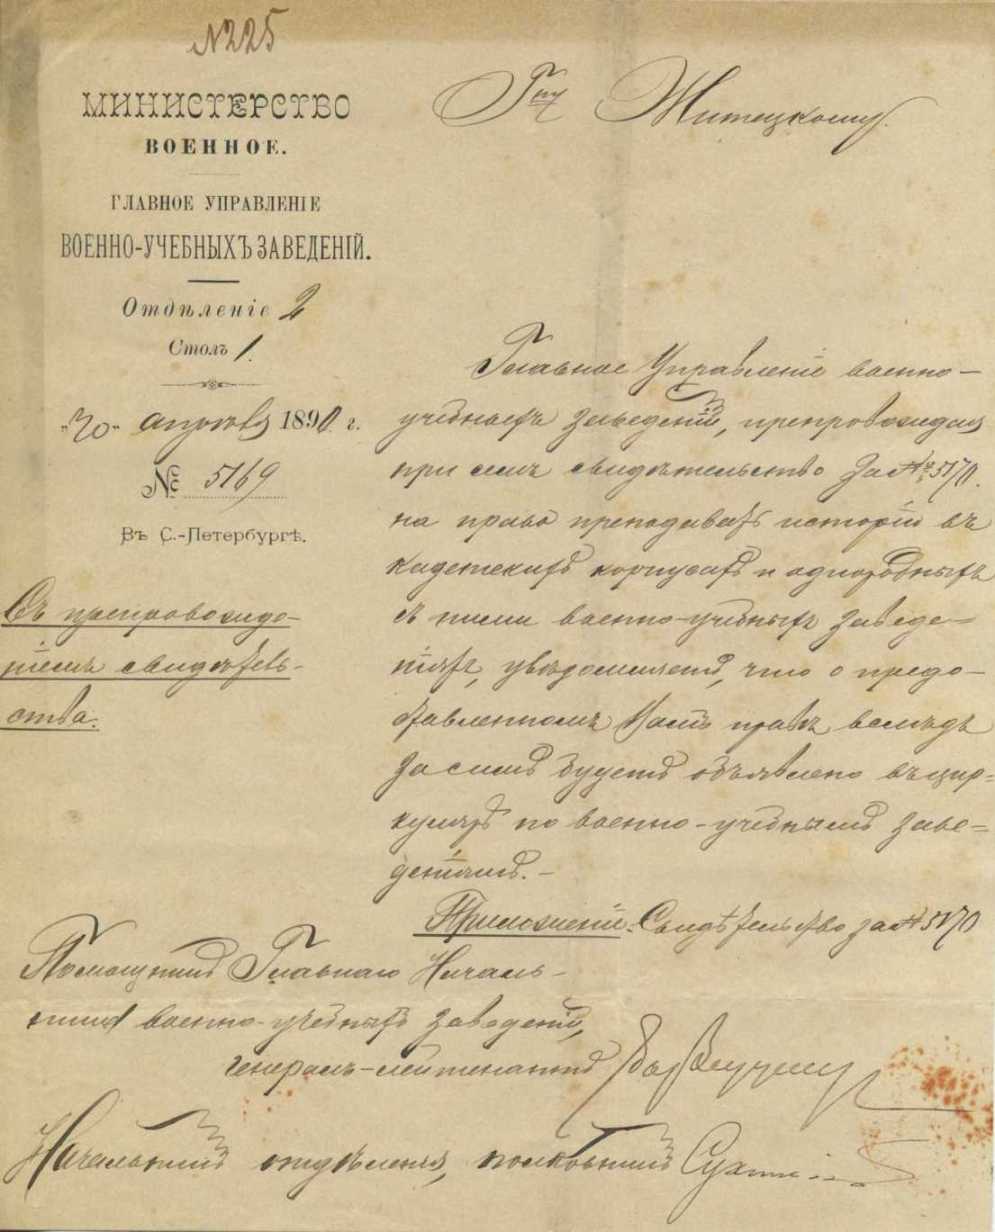 №225
МИНИСТЕРСТВО
ВОЕННОЕ.
ГЛАВНОЕ УПРАВЛЕНІЕ
ВОЕННО-УЧЕБНЫХЪ ЗАВЕДЕНІЙ.
Отдѣленіе 2
Столъ 1.
„30“ апрѣля 1890 г.
№ 5169
Въ С.-Петербургѣ.
Съ препровожде-
ніемъ свидѣтель-
ства.
Гну Житецкому.
Главное Управленіе военно-
учебныхъ заведеній, препровождая
при семъ свидѣтельство за № 5170.
на право преподавать исторію въ
кадетскихъ корпусахъ и однородныхъ
съ ними военно-учебныхъ заведе-
ніяхъ, увѣдомляетъ, что о предо-
ставленномъ Вамъ правѣ вслѣдъ
за симъ будетъ объявлено въ цир-
кулярѣ по военно-учебнымъ заве-
деніямъ.-
Приложеніе: Свидѣтельство за № 5170
Помощникъ Главнаго Началь-
ника военно-учебныхъ заведеній,
генералъ-лейтенантъ
Начальникъ отдѣленія, полковникъ